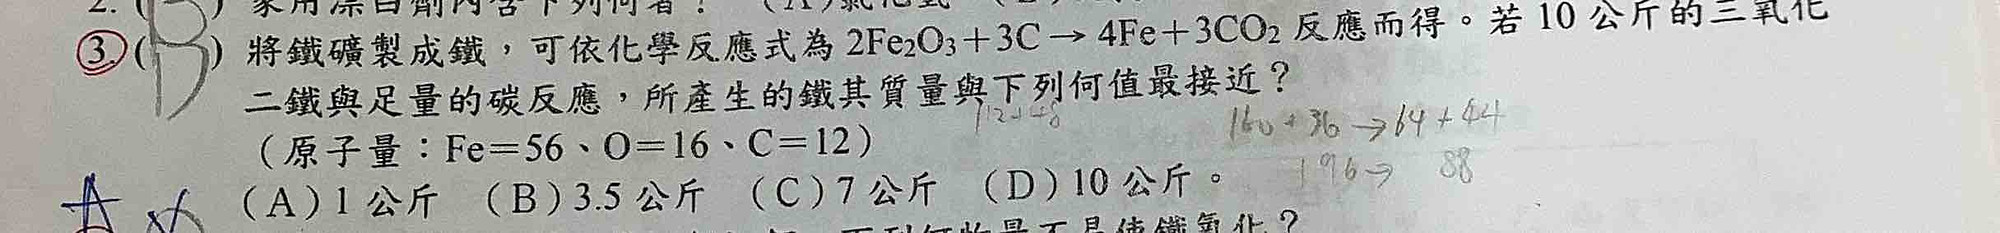 2. ( ) 家用漂白劑內含下列何者？ (A)氯化氫
3. (B) 將鐵礦製成鐵，可依化學反應式為 2Fe₂O₃＋3C→4Fe＋3CO₂ 反應而得。若 10 公斤的三氧化
二鐵與足量的碳反應，所產生的鐵其質量與下列何值最接近？
112+48
160+36→64+44
（原子量：Fe＝56、O＝16、C＝12）
196→ 88
（A）1 公斤 （B）3.5 公斤 （C）7 公斤 （D）10 公斤。
A
下列何物是不是使鐵氧化？